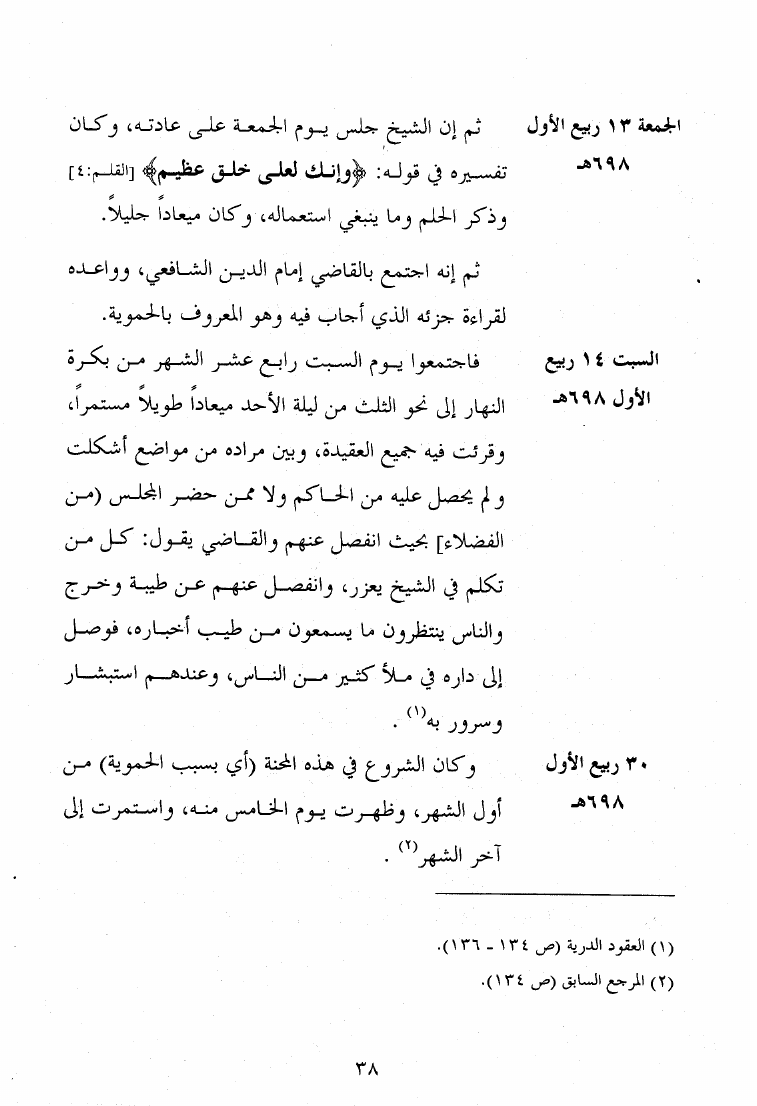 الجمعة ١٣ ربيع الأول
٦٩٨هـ
ثم إن الشيخ جلس يوم الجمعة على عادته، وكان
تفسيره في قوله: ﴿وإنك لعلى خلق عظيم﴾ [القلم:٤]
وذكر الحلم وما ينبغي استعماله، وكان ميعاداً جليلاً.
ثم إنه اجتمع بالقاضي إمام الدين الشافعي، وواعده
لقراءة جزئه الذي أجاب فيه وهو المعروف بالحموية.
السبت ١٤ ربيع
الأول ٦٩٨هـ
فاجتمعوا يوم السبت رابع عشر الشهر من بكرة
النهار إلى نحو الثلث من ليلة الأحد ميعاداً طويلاً مستمراً،
وقرئت فيه جميع العقيدة، وبين مراده من مواضع أشكلت
ولم يحصل عليه من الحاكم ولا ممن حضر المجلس (من
الفضلاء] بحيث انفصل عنهم والقاضي يقول: كل من
تكلم في الشيخ يعزر، وانفصل عنهم عن طيبة وخرج
والناس ينتظرون ما يسمعون من طيب أخباره، فوصل
إلى داره في ملأ كثير من الناس، وعندهم استبشار
وسرور به(١) .
٣٠ ربيع الأول
٦٩٨هـ
وكان الشروع في هذه المحنة (أي بسبب الحموية) من
أول الشهر، وظهرت يوم الخامس منه، واستمرت إلى
آخر الشهر(٢) .
(١) العقود الدرية (ص ١٣٤ - ١٣٦).
(٢) المرجع السابق (ص ١٣٤).
٣٨